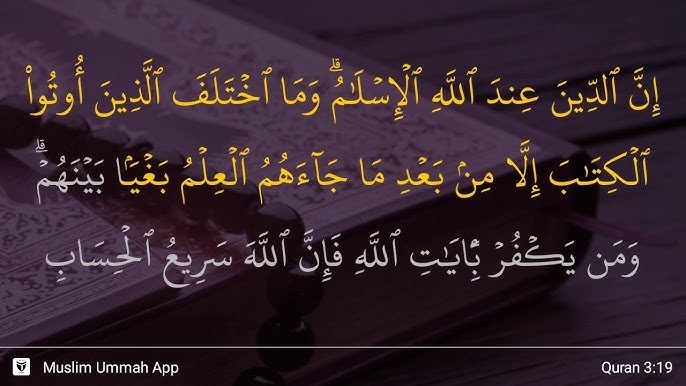 إِنَّ ٱلدِّينَ عِندَ ٱللَّهِ ٱلْإِسْلَٰمُ ۗ وَمَا ٱخْتَلَفَ ٱلَّذِينَ أُوتُوا۟
ٱلْكِتَٰبَ إِلَّا مِنۢ بَعْدِ مَا جَآءَهُمُ ٱلْعِلْمُ بَغْيًۢا بَيْنَهُمْ ۗ
وَمَن يَكْفُرْ بِـَٔايَٰتِ ٱللَّهِ فَإِنَّ ٱللَّهَ سَرِيعُ ٱلْحِسَابِ
Muslim Ummah App
Quran 3:19